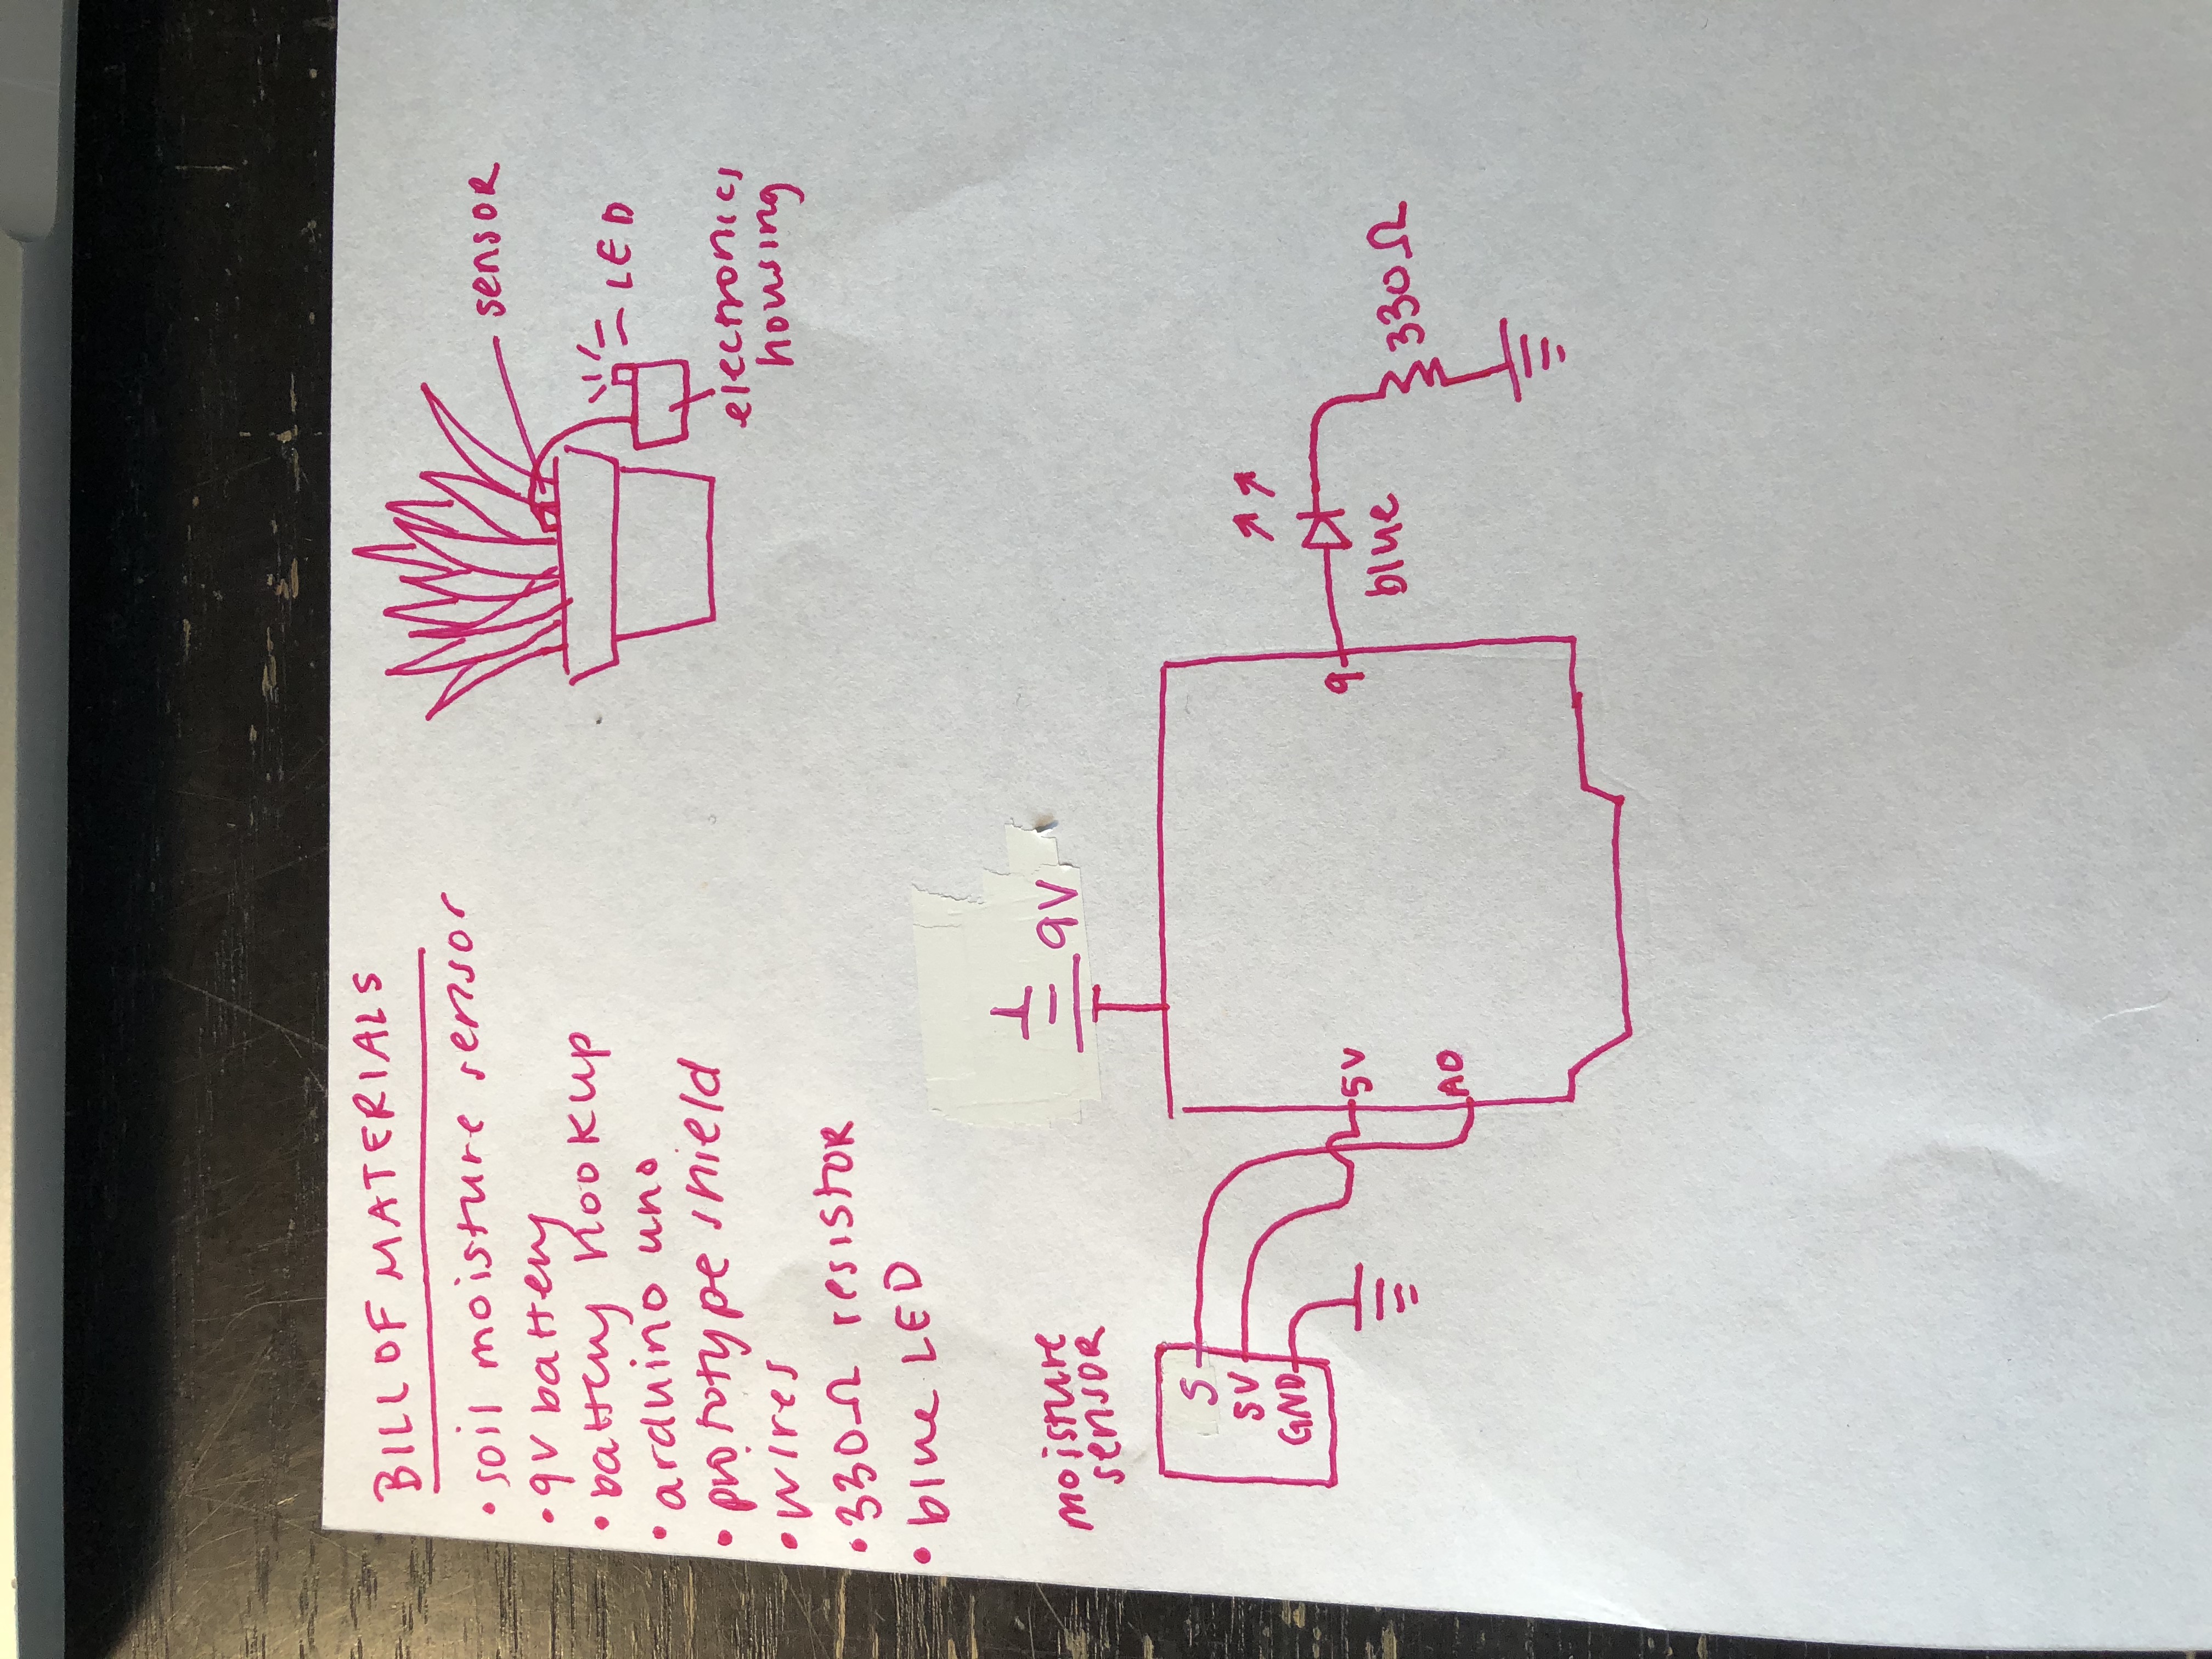 BILL OF MATERIALS
• soil moisture sensor
• 9V battery
• battery hookup
• arduino uno
• prototype shield
• wires
• 330Ω resistor
• blue LED
sensor
LED
electronics
housing
moisture
sensor
9V
S
5V
GND
5V
A0
9
blue
330Ω